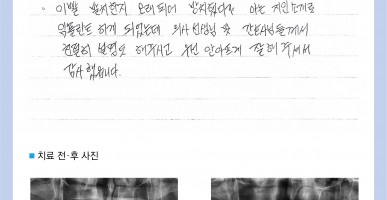 이빨 발치한지 오래되어 방치했다가 아는 지인소개로
임플란트 하게 되었는데 의사선생님 및 간호사님들께서
친절히 설명도 해주시고 우선 안아프게 잘해주셔서
감사했습니다.
치료 전·후 사진